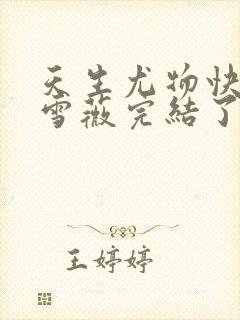 天生尤物快
雪薇完結了
王婷婷